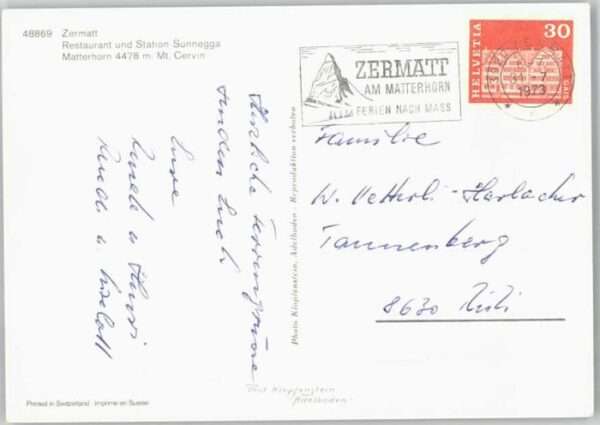 48869 Zermatt
Restaurant und Station Sunnegga
Matterhorn 4478 m. Mt. Cervin
ZERMATT
AM MATTERHORN
FERIEN NACH MASS
HELVETIA
30
1973
Familie
W. Harlacher
Tannenberg
8630 Rüti
Herzliche Feriengrüsse
senden Euch
Eure
Photo Klopfenstein, Adelboden - Reproduktion verboten
Printed in Switzerland Imprimé en Suisse
Klopfenstein
Adelboden